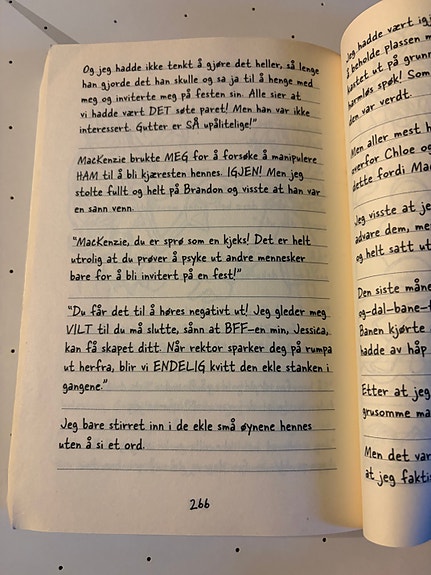 Og jeg hadde ikke tenkt å gjøre det heller, så lenge
han gjorde det han skulle og sa ja til å henge med
meg og inviterte meg på festen sin. Alle sier at
vi hadde vært DET søte paret! Men han var ikke
interessert. Gutter er SÅ upålitelige!"
MacKenzie brukte MEG for å forsøke å manipulere
HAM til å bli kjæresten hennes. IGJEN! Men jeg
stolte fullt og helt på Brandon og visste at han var
en sann venn.
"MacKenzie, du er sprø som en kjeks! Det er helt
utrolig at du prøver å psyke ut andre mennesker
bare for å bli invitert på en fest!"
"Du får det til å høres negativt ut! Jeg gleder meg
VILT til du må slutte, sånn at BFF-en min, Jessica,
kan få skapet ditt. Når rektor sparker deg på rumpa
ut herfra, blir vi ENDELIG kvitt den ekle stanken i
gangene."
Jeg bare stirret inn i de ekle små øynene hennes
uten å si et ord.
266
Jeg hadde vært
å beholde plassen
kastet ut på
harmløs spøk!
den var verdt.
Men aller mest
overfor Chloe og
dette fordi
Jeg visste at
advare dem,
og helt satt
Den siste
og-dal-bane-
Banen kjørte
hadde av håp
Etter at jeg
grusomme
Men det var
at jeg